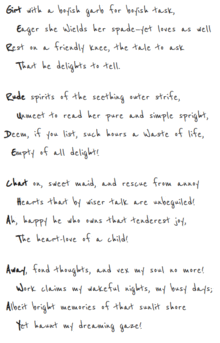 Girt with a boyish garb for boyish task,
Eager she wields her spade—yet loves as well
Rest on a friendly knee, the tale to ask
That he delights to tell.
Rude spirits of the seething outer strife,
Unmeet to read her pure and simple spright,
Deem, if you list, such hours a waste of life,
Empty of all delight!
Chat on, sweet maid, and rescue from annoy
Hearts that by wiser talk are unbeguiled!
Ah, happy he who owns that tenderest joy,
The heart-love of a child!
Away, fond thoughts, and vex my soul no more!
Work claims my wakeful nights, my busy days;
Albeit bright memories of that sunlit shore
Yet haunt my dreaming gaze!